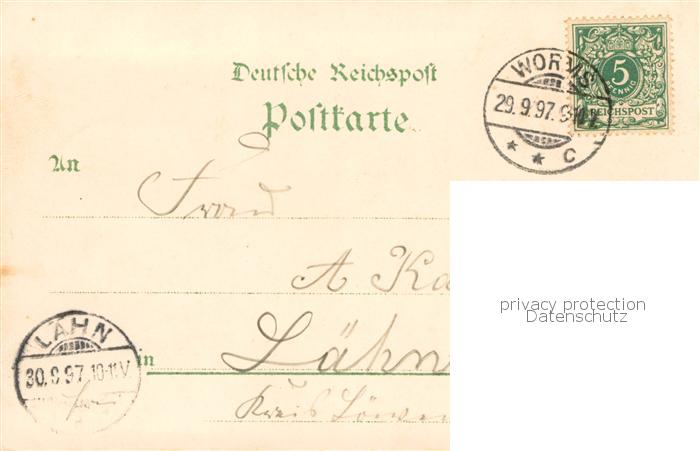 Deutsche Reichspost
Postkarte
WORMS
29.9.97. 9-10V.
* * C
5
PFENNIG
REICHSPOST
An
Frau
A Ka
in Lähn
Kreis Löwen
LÄHN
30.9.97. 10-11V
privacy protection
Datenschutz